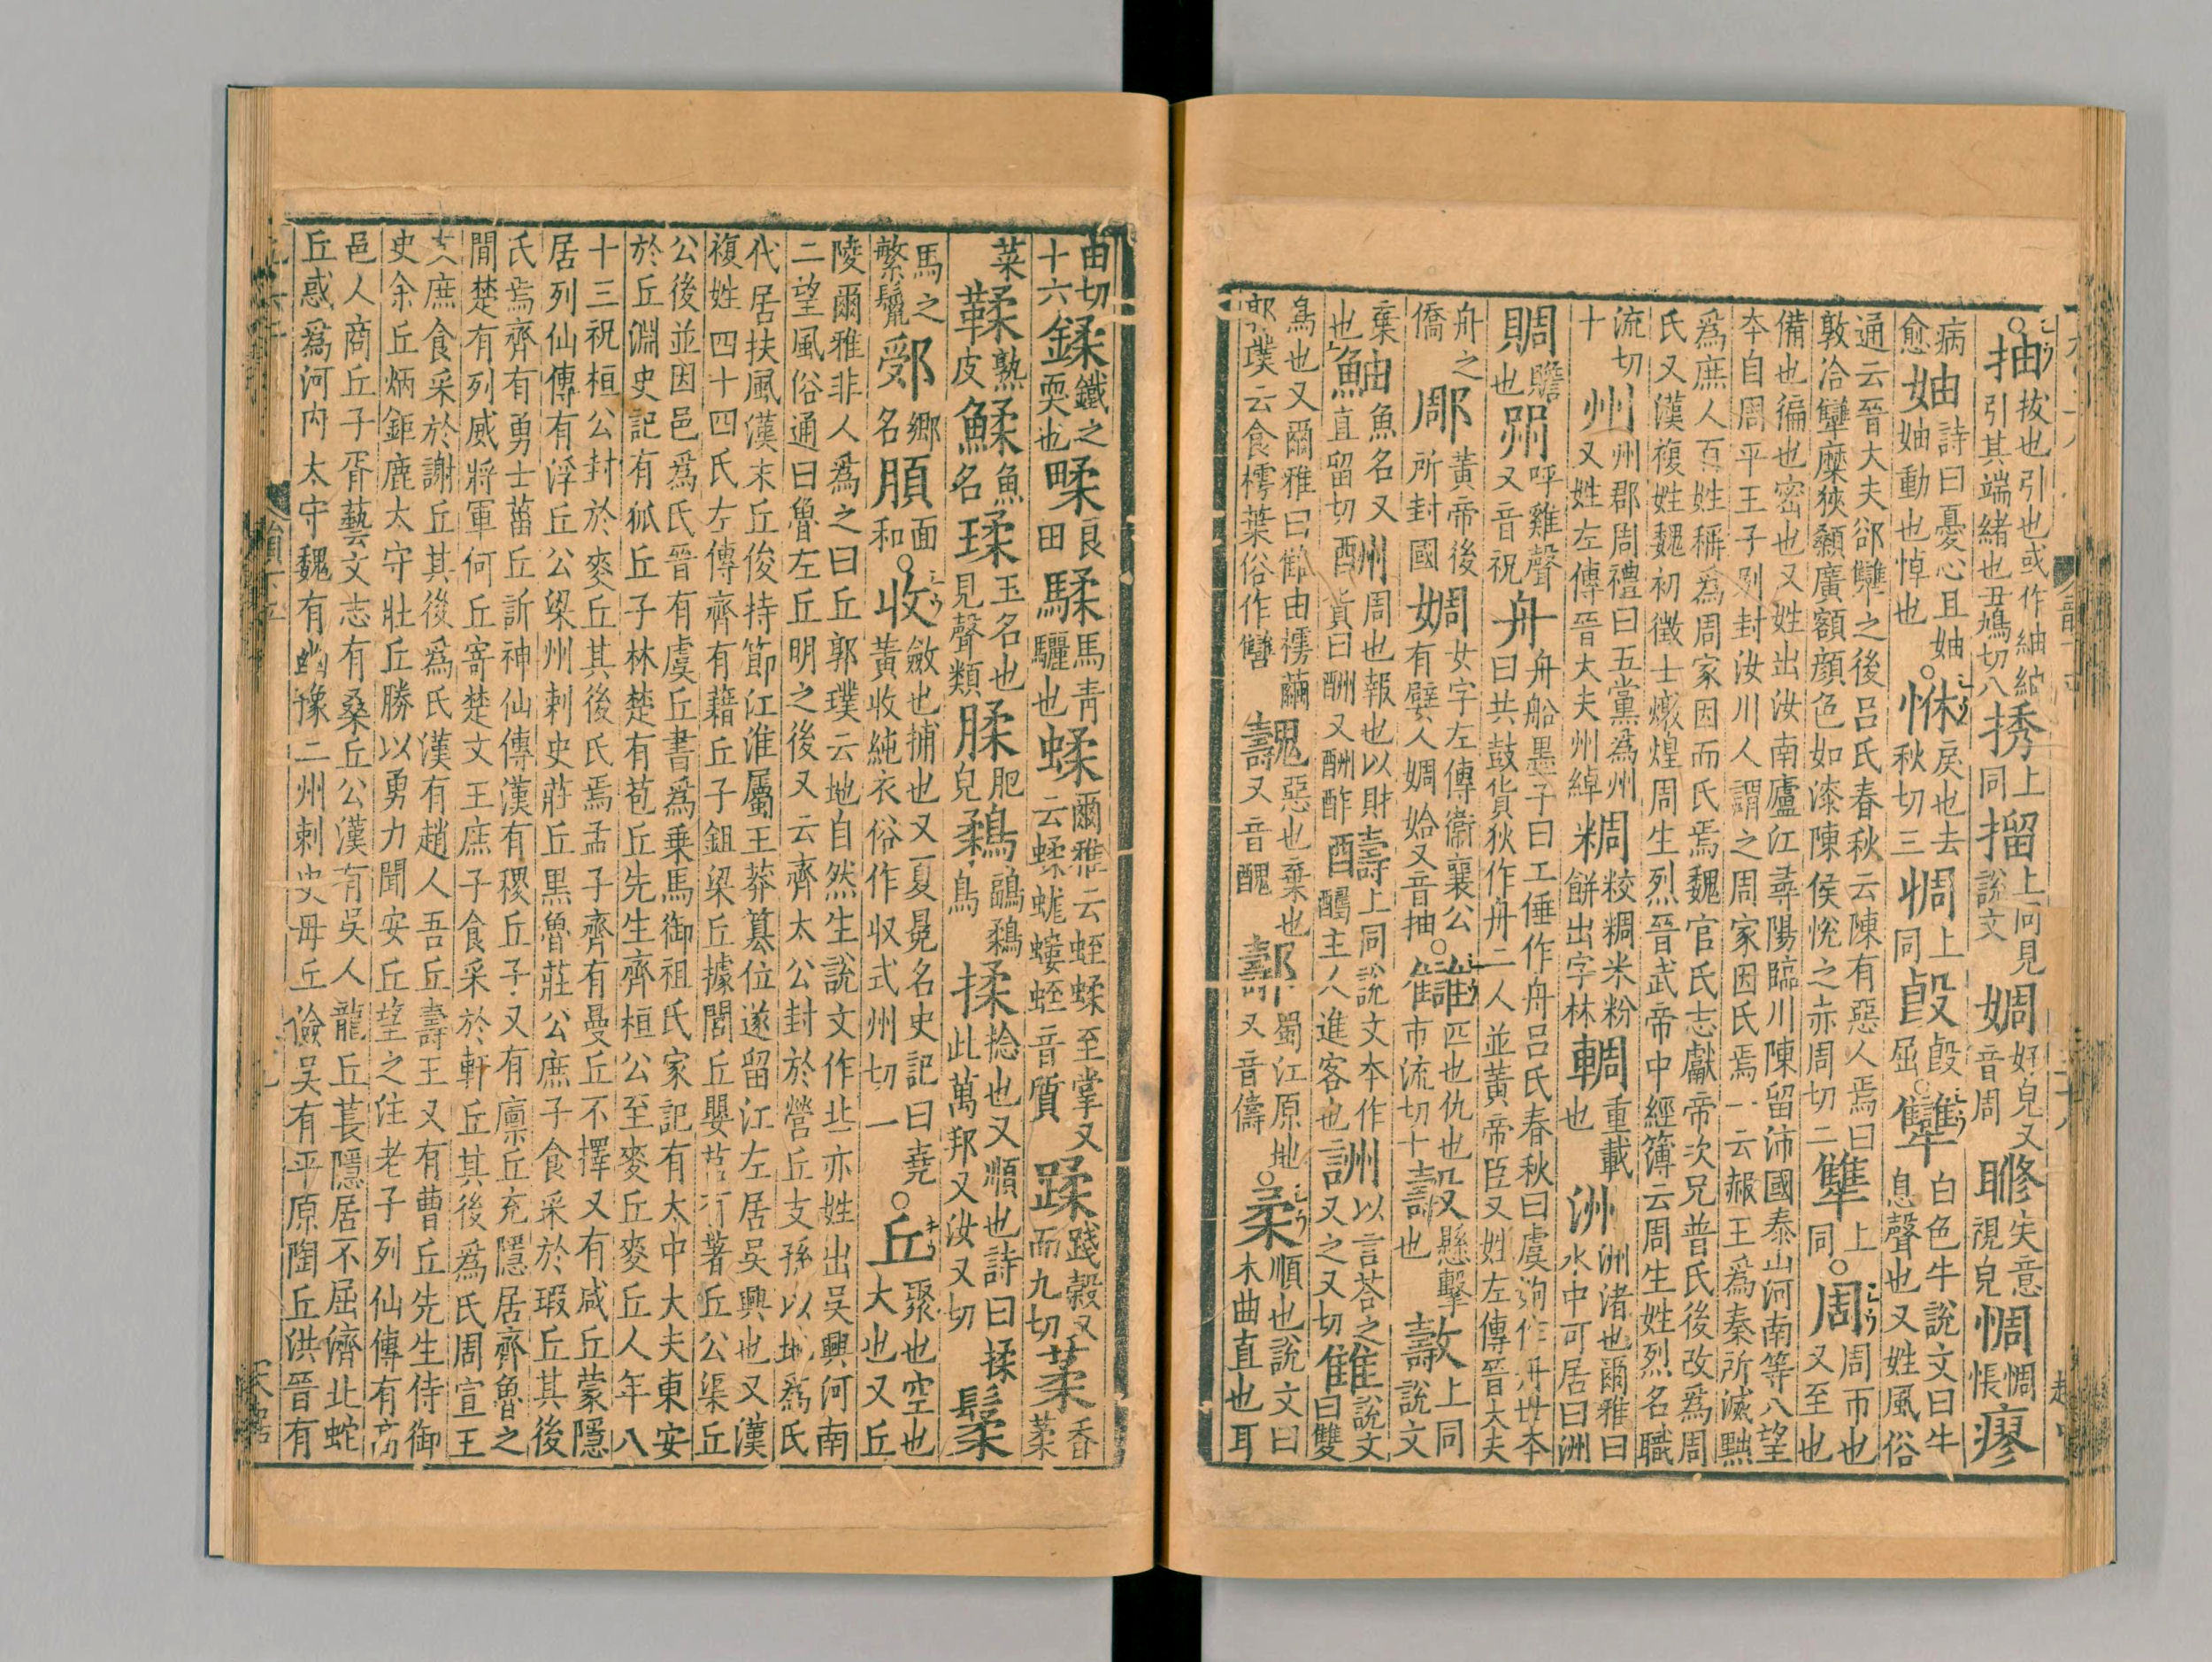 抽拔也引也或作紬紬引其端緒也丑鳩切八𢭆上同㩅上同見說文婤好皃又音周䀺失意視皃惆惆悵瘳
病愈妯詩曰憂心且妯妯動也悼也○惆戾也去秋切三惆上同㱿㱿屈○犨白色牛說文曰牛息聲也又姓風俗
通云晉大夫郤犨之後呂氏春秋云陳有惡人焉曰敦洽犨糜狹顙廣額顔色如漆陳侯悅之赤周切二犨上同○周周帀也又至也
備也徧也密也又姓出汝南廬江尋陽臨川陳留沛國泰山河南等八望本自周平王子別封汝川人謂之周家因氏焉一云赧王爲秦所滅黜
爲庶人百姓稱爲周家因而氏焉魏官氏志獻帝次兄普氏後改爲周氏又漢複姓魏初徵士燉煌周生烈晉武帝中經簿云周生姓烈名職
流切十州州郡周禮曰五黨爲州又姓左傳晉大夫州綽粷粷米粉餅出字林輖重載也洲洲渚也爾雅曰水中可居曰洲
賙贍也喌呼雞聲又音祝舟舟船墨子曰工倕作舟呂氏春秋曰虞姁作舟世本曰共鼓貨狄作舟二人並黃帝臣又姓左傳晉大夫
舟之僑郮黃帝後所封國婤女字左傳衞襄公有嬖人婤姶又音抽○讎匹也仇也市流切十㱠懸擊也𢾭上同說文
棄也鮋魚名又直留切州周也報也以財貨曰酬又酬酢醻上同說文本作醻主人進客也詶以言荅之又之又切雔說文曰雙
鳥也又爾雅曰雔由樗繭郭璞云食樗葉俗作讐魗惡也棄也又音醜䣿蜀江原地又音儔○柔順也說文曰木曲直也耳
由切十六鍒鐵之耎也䰆良田騥馬青驪也蝚爾雅云蛭蝚至掌又云蝚蛖螻蛭音質蹂踐穀又而九切葇香葇
菜鞣熟皮鰇魚名瑈玉名也見聲類腬肥皃鶔鶝鶔鳥揉捻也又順也詩曰揉此萬邦又汝又切鬏
馬之繁鬣䣆鄉名䐓面和○收斂也捕也又夏冕名史記曰堯黃收純衣俗作収式州切一○丘聚也空也大也又丘
陵爾雅非人爲之曰丘郭璞云地自然生說文作丠亦姓出吳興河南二望風俗通曰魯左丘明之後又云齊太公封於營丘支孫以地爲氏
代居扶風漢末丘俊持節江淮屬王莽篡位遂留江左居吳興也又漢複姓四十四氏左傳齊有籍丘子鉏梁丘據閭丘嬰苫丘著丘公渠丘
公後並因邑爲氏晉有虞丘書爲乗馬御祖氏家記有大中大夫東安於丘淵史記有狐丘子林楚有苞丘先生齊桓公至麥丘麥丘人年八
十三祝桓公封於麥丘其後氏焉孟子齊有曼丘不擇又有咸丘蒙隱居列仙傳有浮丘公梁州刺史莊丘黑魯莊公庶子食采於瑕丘其後
氏焉齊有勇士菑丘訢神仙傳漢有稷丘子又有廩丘充隱居齊魯之間楚有列威將軍何丘寄楚文王庶子食采於軒丘其後爲氏周宣王
支庶食采於謝丘其後爲氏漢有趙人吾丘壽王又有曹丘先生侍御史余丘炳鉅鹿太守壯丘勝以勇力聞安丘望之住老子列仙傳有高
邑人商丘子胥藝文志有桑丘公漢有吳人龍丘萇隱居不屈濟北蛇丘惑爲河內太守魏有幽豫二州刺史毋丘儉吳有平原陶丘洪晉有